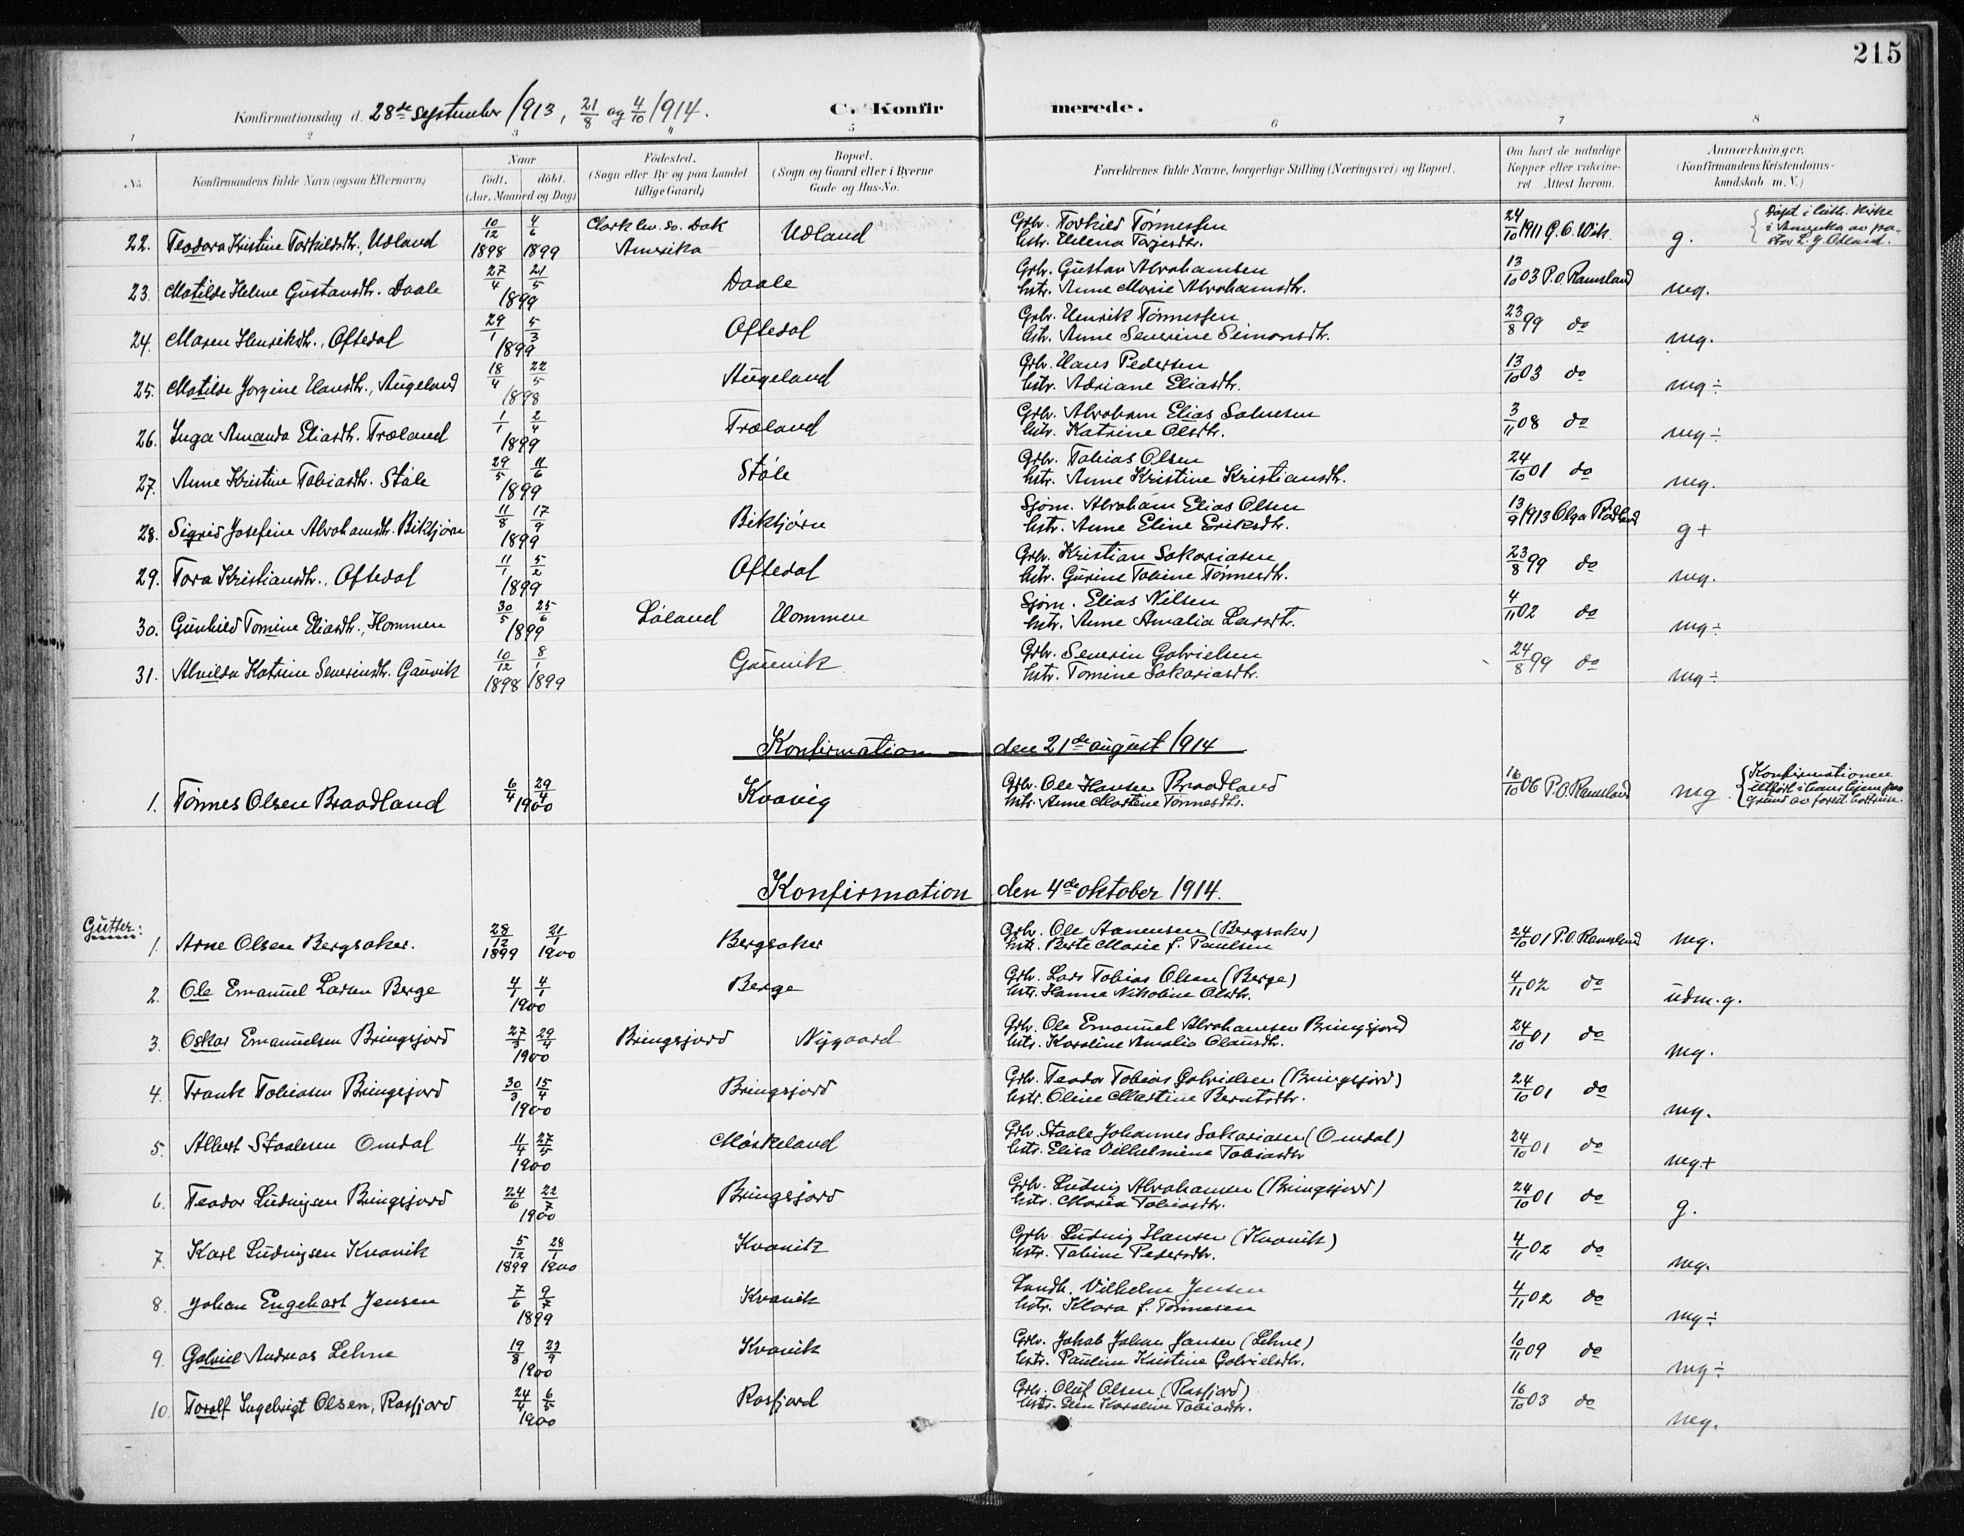 215
Konfirmationsdag d. 28de september 1913, 21/8 og 4/10 1914. C. Konfirmerede.
1 2 3 " 5 6 7 8
No. Konfirmandens fulde Navn (ogsaa Efternavn) Naar født. døbt. (Aar, Maaned og Dag) Fødested. (Sogn eller By og paa Landet tillige Gaard) Bopæl. (Sogn og Gaard eller i Byerne Gade og Hus-No. Forældrenes fulde Navne, borgerlige Stilling (Næringsvei) og Bopæl. Om havt de naturlige Kopper eller vaccineret Attest herom. Anmærkninger, (Konfirmandens Kristendomskundskab m. V.)
22. Teodora Kristine Torkildsdtr., Udland 10/12 1898 4/6 1899 Clark So. Dak Amerika Udland Grbr. Torkild Tønnessen hstr. Helena Tarjesdtr. 24/10 1911 G. C. Wik. g. Døpt i luth. kirke i Amerika av pastor
23. Matilde Helene Gustavsdtr. Daale 27/4 21/5 1899 Daale Grbr. Gustav Abrahamsen hstr. Anne Marie Abrahamsdtr. 13/10 03 P. O. Ramsland mg.
24. Maren Henriksdtr., Oftedal 29/1 5/3 1899 Oftedal Grbr. Henrik Tønnessen hstr. Anne Severine Simonsdtr. 23/8 99 do mg.
25. Matilde Jorgine Hansdtr., Augeland 18/4 22/5 1898 Augeland Grbr. Hans Pedersen hstr. Adriane Eliasdtr. 13/10 03 do mg ÷
26. Inga Amanda Eliasdtr. Træland 1/1 2/4 1899 Træland Grbr. Abraham Elias Salvesen hstr. Katrine Olsdtr. 3/11 08 do mg ÷
27. Anne Kristine Tobiasdtr. Støle 29/5 11/6 1899 Støle Grbr. Tobias Olsen hstr. Anne Kristine Kristiansdtr. 24/10 01 do mg.
28. Sigrid Josefine Abrahamsdtr. Biktjørn 11/8 17/9 1899 Biktjørn Sjøm. Abraham Elias Olsen hstr. Anne Eline Eriksdtr. 13/9 1913 Olga Rødland g +
29. Tora Kristiansdtr., Oftedal 11/1 5/2 1899 Oftedal Grbr. Kristian Sakariasen hstr. Gurine Tobine Tønnesdtr. 23/8 99 do mg.
30. Gunhild Tomine Eliasdtr., Hommen 30/5 25/6 1899 Løland Hommen Sjøm. Elias Nilsen hstr. Anne Amalia Larsdtr. 4/11 02 do mg ÷
31. Alvilda Katrine Severinsdtr. Gauvik 10/12 1898 8/1 1899 Gauvik Grbr. Severin Gabrielsen hstr. Tomine Sakariasdtr. 24/8 99 do mg ÷
Konfirmation den 21de august 1914
1. Tønnes Olsen Braadland 6/4 29/4 1900 Kvavig Grbr. Ole Hansen Braadland hstr. Anne Martine Tønnesdtr. 16/10 06 P. O. Ramsland mg Konfirmationen utført i hans hjem paa grund av
Konfirmation den 4de oktober 1914.
Gutter:
1. Arne Olsen Bergsaker. 28/12 1899 21/1 1900 Bergsaker Grbr. Ole Aanensen (Bergsaker) hstr. Berte Marie f. Paulsen 24/10 01 P. O. Ramsland mg.
2. Ole Emanuel Larsen Berge 4/1 4/1 1900 Berge Grbr. Lars Tobias Olsen (Berge) hstr. Hanne Nikoline Olsdtr. 4/11 02 do udm. g.
3. Oskar Emanuelsen Bringsjord 27/3 29/4 1900 Bringsjord Nygaard Grbr. Ole Emanuel Abrahamsen Bringsjord hstr. Karoline Amalia Olausdtr. 24/10 01 do mg.
4. Frank Tobiasen Bringsjord 30/3 15/4 1900 Bringsjord Grbr. Teodor Tobias Gabrielsen (Bringsjord) hstr. Oline Martine Berntsdtr. 24/10 01 do mg.
5. Albert Staalesen Omdal 11/4 27/5 1900 Møskeland Grbr. Staale Johannes Sakariasen (Omdal) hstr. Elisa Vilhelmine Tobiasdtr 24/10 01 do mg +
6. Teodor Ludvigsen Bringsjord 24/6 22/7 1900 Bringsjord Grbr. Ludvig Abrahamsen (Bringsjord) hstr. Maria Tobiasdtr. 24/10 01 do g.
7. Karl Ludvigsen Kvavik 5/12 1899 28/1 1900 Kvavik Grbr. Ludvig Hansen (Kvavik) hstr. Tobine Pedersdtr. 4/11 02 do mg.
8. Johan Engehart Jensen 7/6 9/7 1899 Kvavik Landh. Vilhelm Jensen hstr. Klara f. Tønnesen 4/11 02 do mg ÷
9. Gabriel Andreas Lehne 19/8 23/9 1900 Kvavik Grbr. Jakob Johan Jansen (Lehne) hstr. Pauline Kristine Gabrielsdtr. 10/11 09 do mg ÷
10. Toralf Ingebrigt Olsen, Rosfjord 24/4 6/5 1900 Rosfjord Grbr. Oluf Olsen (Rosfjord) hstr. Karoline Tobiasdtr. 16/10 03 do mg.